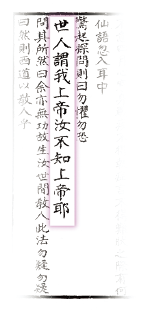 仙語忽入耳中
驚起探問則曰勿懼勿恐
世人謂我上帝汝不知上帝耶
問其所然曰余亦無功故生汝世間敎人此法勿疑勿疑
曰然則西道以敎人乎